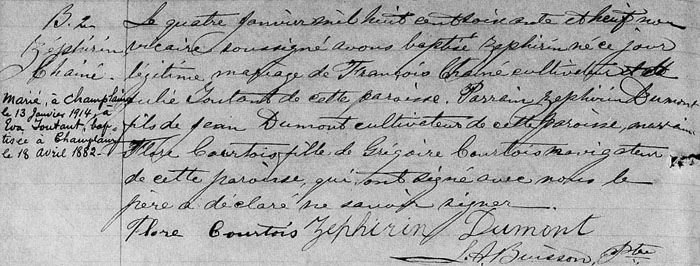 B. 2
Zéphirin
Chainé.
Marié, à Champlain
le 13 Janvier 1914, à
Eva Toutant, bap-
tisée à Champlain
le 18 avril 1882.
Le quatre Janvier mil huit cent soixante et neuf nous
vicaire soussigné avons baptisé Zéphirin né ce jour
légitime mariage de François Chainé cultivateur et de
Julie Toutant de cette paroisse. Parrain Zéphirin Dumont
fils de Jean Dumont cultivateur de cette paroisse, marraine
Flore Courtois, fille de Grégoire Courtois navigateur
de cette paroisse, qui ont signé avec nous le
père a déclaré ne savoir signer.
Flore Courtois Zéphirin Dumont
Buisson, Ptre